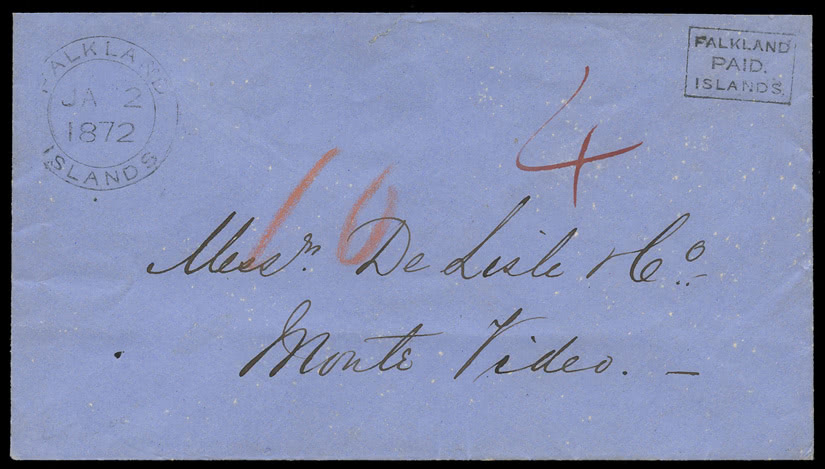 FALKLAND ISLANDS
JA 2
1872
FALKLAND
PAID.
ISLANDS.
4
10
Messrs. De Lisle & Co.
Monte Video. —